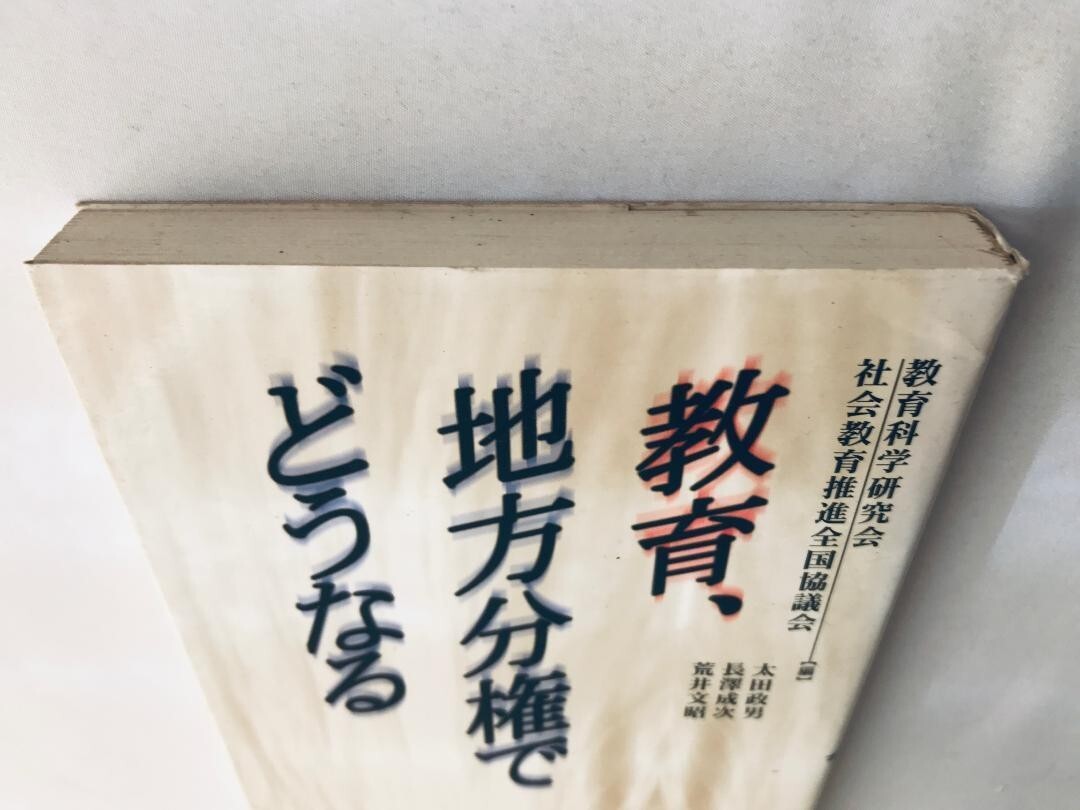 教育科学研究会
社会教育推進全国協議会
[編]
教育、
地方分権で
どうなる
太田政男
長澤成次
荒井文昭